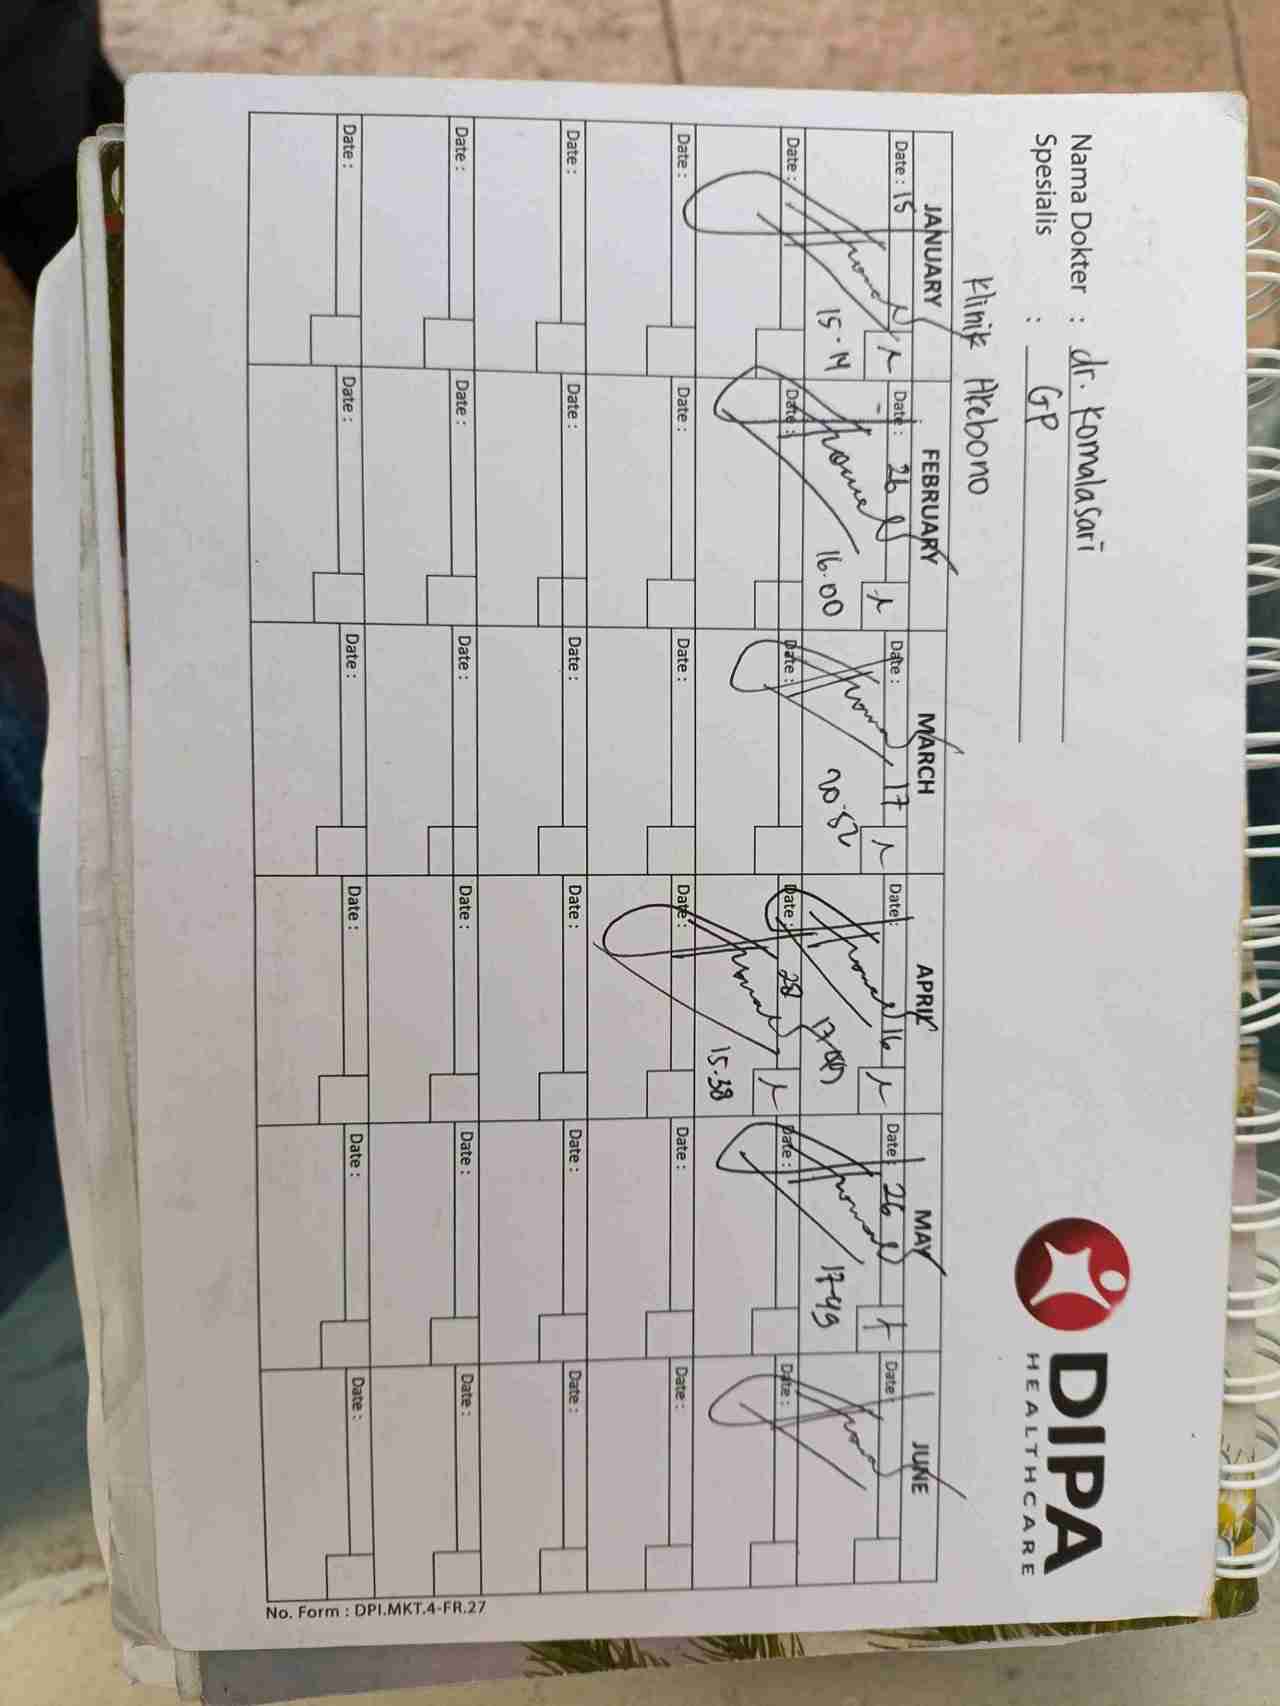 Nama Dokter : dr. Komalasari
Spesialis : GP
Klinik Akebono
DIPA
HEALTHCARE
JANUARY FEBRUARY MARCH APRIL MAY JUNE
Date : 15 Date : 26 Date : 17 Date : 16 Date : 26 Date :
15.14 16.00 20.52 17.49
Date : Date : Date : Date : 28 Date : Date :
15.38
Date : Date : Date : Date : Date : Date :
Date : Date : Date : Date : Date : Date :
Date : Date : Date : Date : Date : Date :
Date : Date : Date : Date : Date : Date :
No. Form : DPI.MKT.4-FR.27